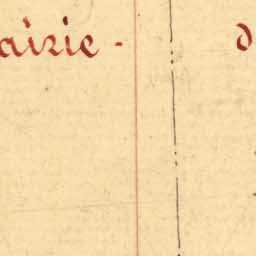 airie - d